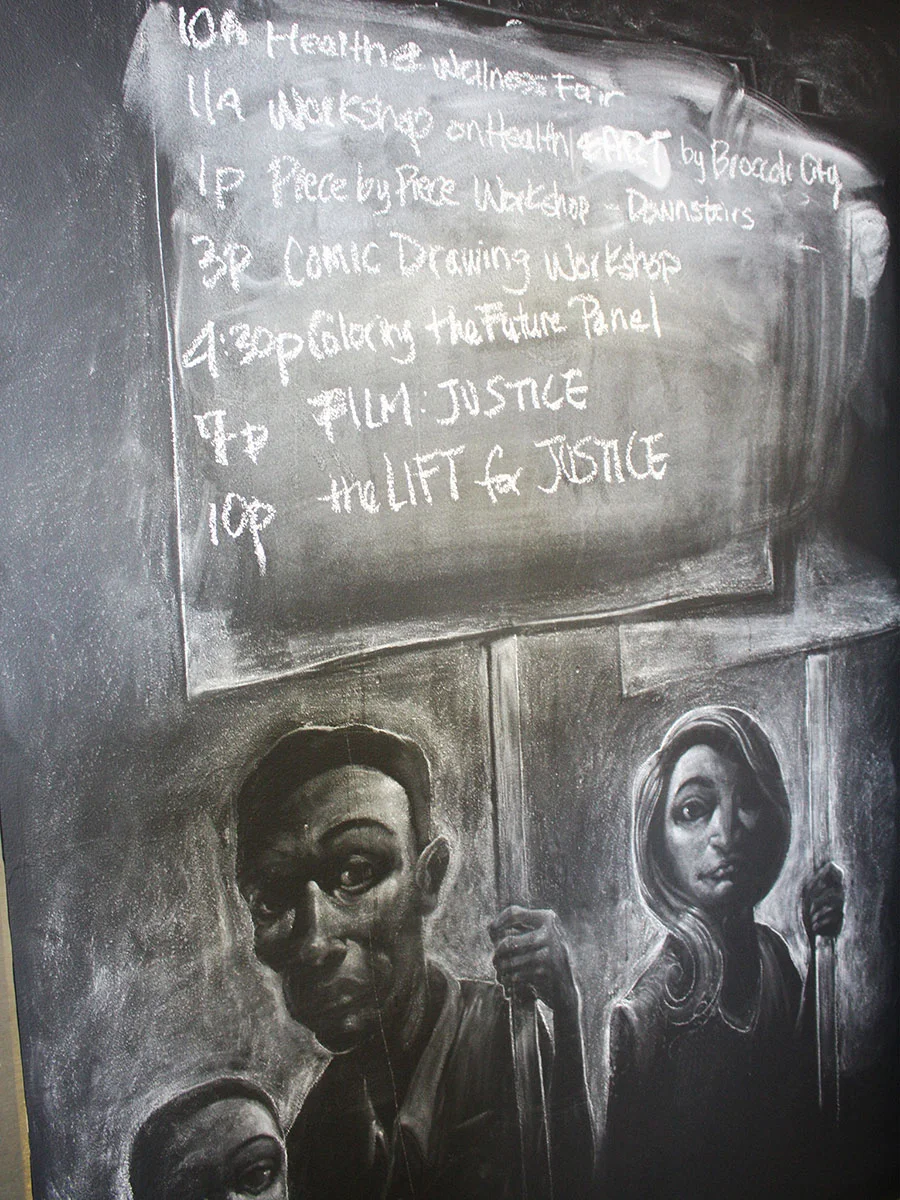 10A Health & Wellness Fair
11A Workshop on Health | ART by Broccoli City
1p Piece by Piece Workshop - Downstairs
3p Comic Drawing Workshop
4:30p Coloring the Future Panel
7p FILM: JUSTICE
10p the LIFT for JUSTICE